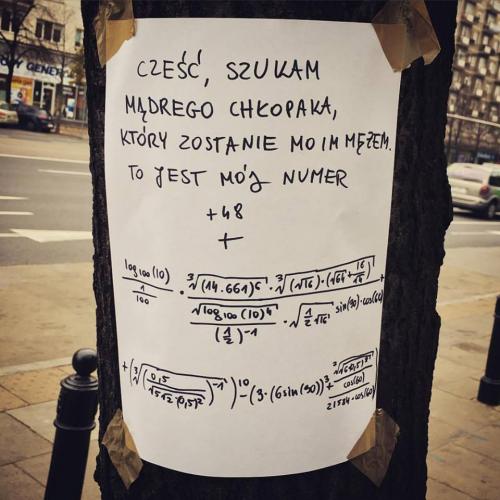 CZEŚĆ, SZUKAM
MĄDREGO CHŁOPAKA,
KTÓRY ZOSTANIE MOIM MĘŻEM.
TO JEST MÓJ NUMER
+48
+
log100(10) / (1/100) · ∛(14.661)⁶ · ∛((√16)·(√64+16/√4)) / (√(log100(10)⁴) / (1/2)⁻¹ · √(1/2 √16)) sin(90)·cos(60) +
+ (∛(0,5/√512·(0,5)²)⁻¹)¹⁰ - (3·(6sin(90))³ +
21584·cos(60)